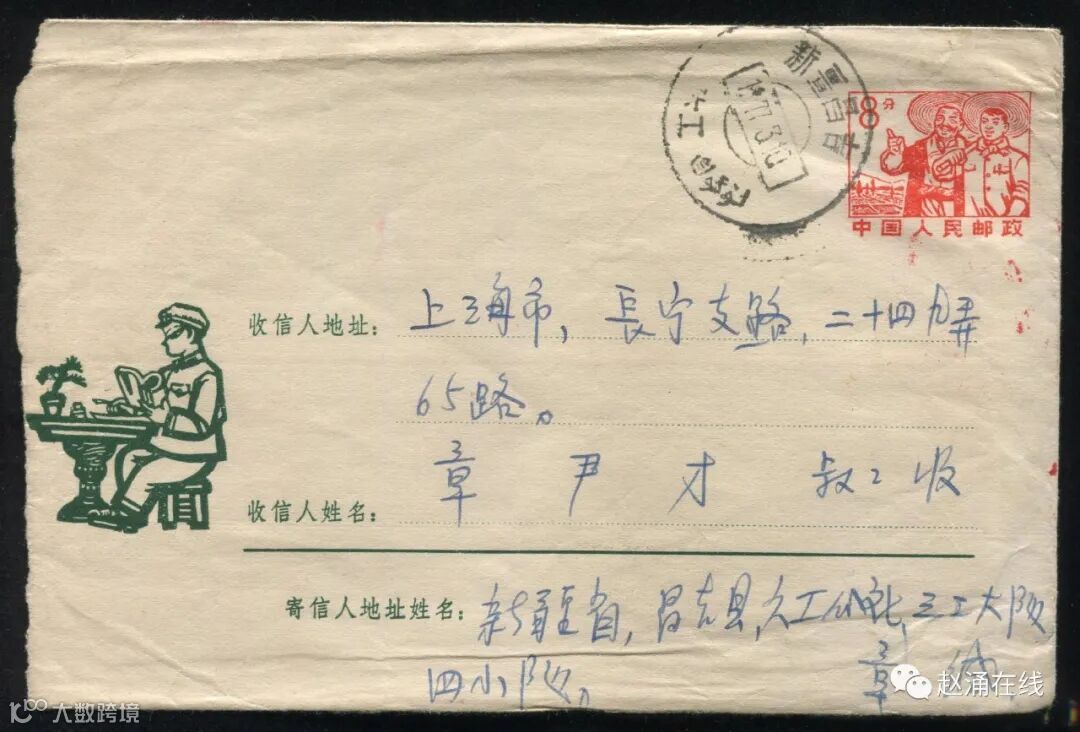 新疆昌吉
1977.3.10
8分
中国人民邮政
收信人地址: 上海市, 長宁支路, 二十四九弄
65路。
收信人姓名: 章尹才 叔叔收
寄信人地址姓名: 新疆省, 昌吉县, 六工公社, 三工大队
四小队, 章
赵涌在线
大数跨境